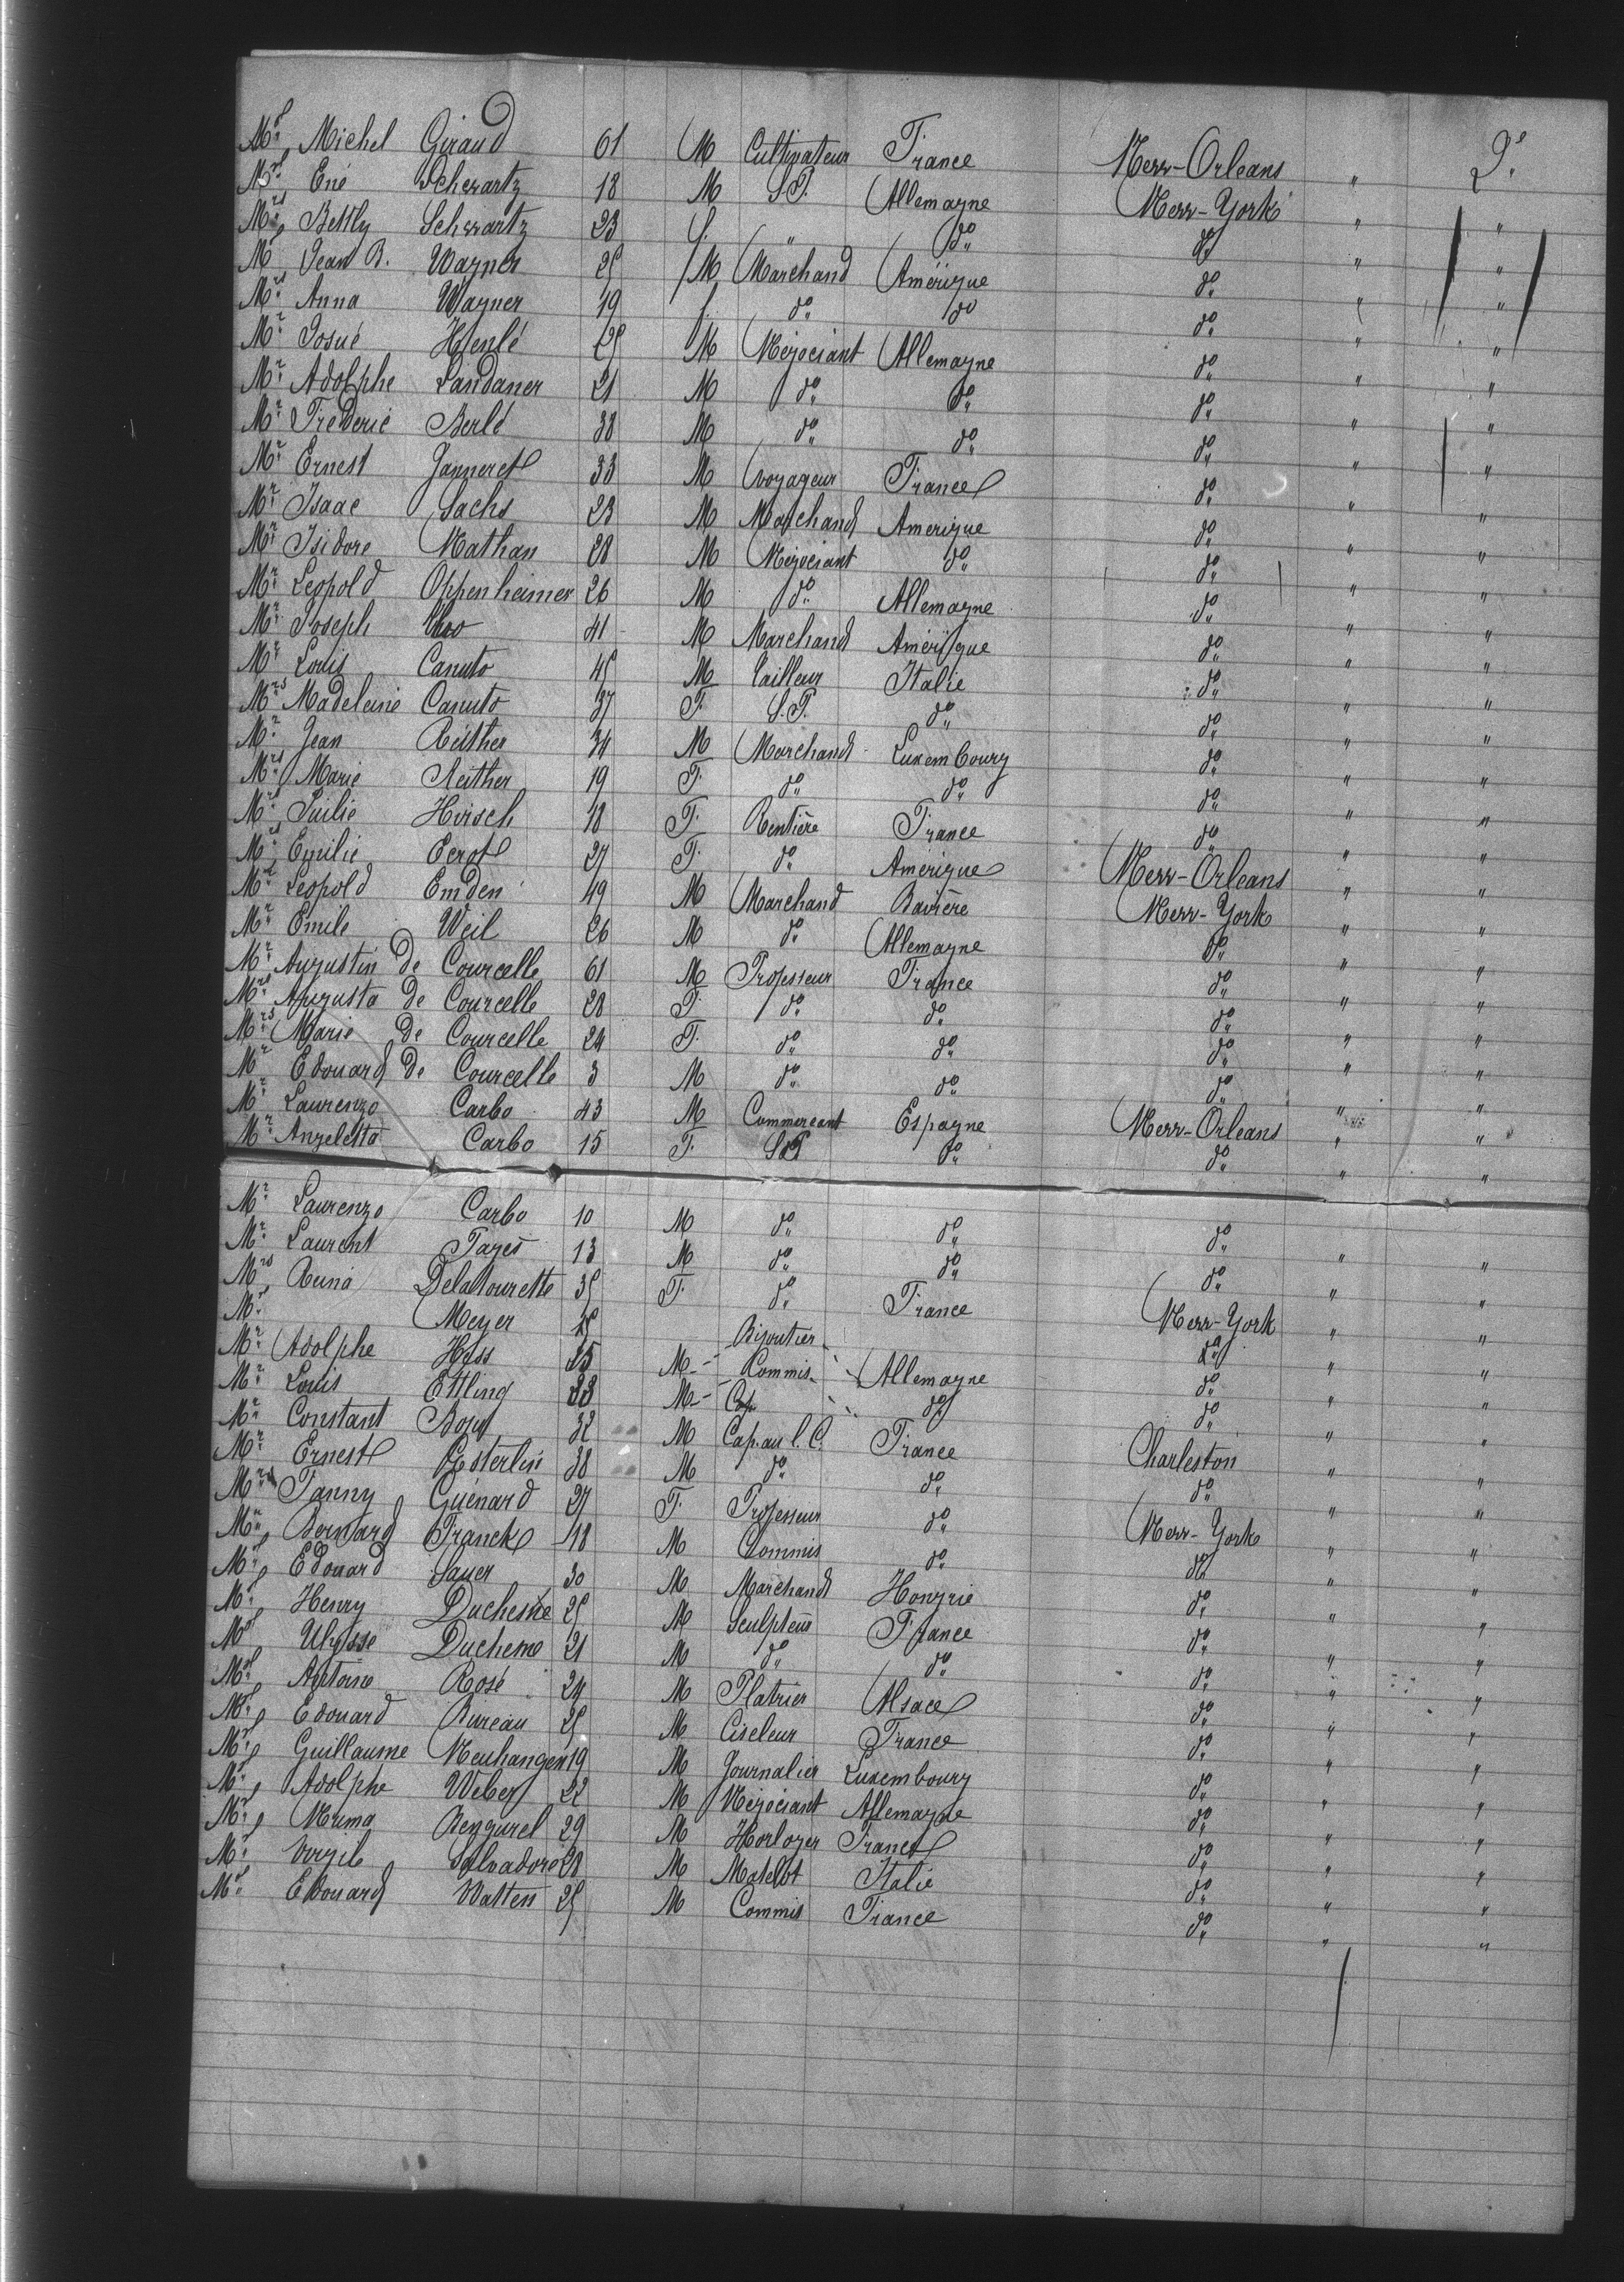 Mr Michel Giraud 61 M Cultivateur France New-Orleans " 2e
Mr Ené Schwartz 18 M S.P. Allemagne New-York " "
Mrs Bettly Schwartz 23 f. " do do " "
Mr Jean B. Wagner 25 M Marchand Amérique do " "
Mrs Anna Wagner 19 f. do do do " "
Mr Josué Henlé 25 M Négociant Allemagne do " "
Mr Adolphe Landauer 21 M do do do " "
Mr Fréderic Berlé 38 M do do do " "
Mr Ernest Janneret 33 M Voyageur France do " "
Mr Isaac Sachs 23 M Marchand Amerique do " "
Mr Isidore Nathan 28 M Négociant do do " "
Mr Leopold Oppenheimer 26 M do Allemagne do " "
Mr Joseph 41 M Marchand Amérique do " "
Mr Louis Canuto 45 M Tailleur Italie do " "
Mrs Madeleine Canuto 37 F. S.P. do do " "
Mr Jean Reither 34 M Marchand Luxembourg do " "
Mrs Marie Reither 19 F. do do do " "
Mrs Julie Hirsch 18 F. Rentière France do " "
Mrs Emilie Ecrot 27 F. do Amérique New-Orleans " "
Mr Leopold Emden 49 M Marchand Bavière New-York " "
Mr Emile Weil 26 M do Allemagne do " "
Mr Augustin de Courcelle 61 M Professeur France do " "
Mrs Augusta de Courcelle 28 F. do do do " "
Mrs Marie de Courcelle 24 F. do do do " "
Mr Edouard de Courcelle 3 M do do do " "
Mr Laurenzo Carbo 43 M Commercant Espagne New-Orleans " "
Mr Angeletta Carbo 15 F. S.P. do do " "
Mr Laurenzo Carbo 10 M do do do " "
Mr Laurent Pagès 13 M do do do " "
Mrs Reina Delatourette 35 F. do France do " "
Mr Meyer 25 Bijoutier New-York " "
Mr Adolphe Hess 25 M Commis Allemagne do " "
Mr Louis Ettling 23 M do do " "
Mr Constant Bouy 32 M Cap. au l. C. France do " "
Mr Ernest Esterlin 38 M do do Charleston " "
Mrs Fanny Guenard 27 F. Professeur do do " "
Mr Bernard Franck 18 M Commis do New-York " "
Mr Edouard Sauer 30 M Marchand Hongrie do " "
Mr Henry Duchesne 25 M Sculpteur France do " "
Mr Ulysse Duchesne 21 M do do do " "
Mr Antoine Rosé 24 M Platrier Alsace do " "
Mr Edouard Bureau 25 M Ciseleur France do " "
Mr Guillaume Neuhangen 19 M Journalier Luxembourg do " "
Mr Adolphe Weber 22 M Négociant Allemagne do " "
Mr Numa Rengurel 29 M Horloger France do " "
Mr Virgile Salvadore 28 M Matelot Italie do " "
Mr Edouard Watten 25 M Commis France do " "